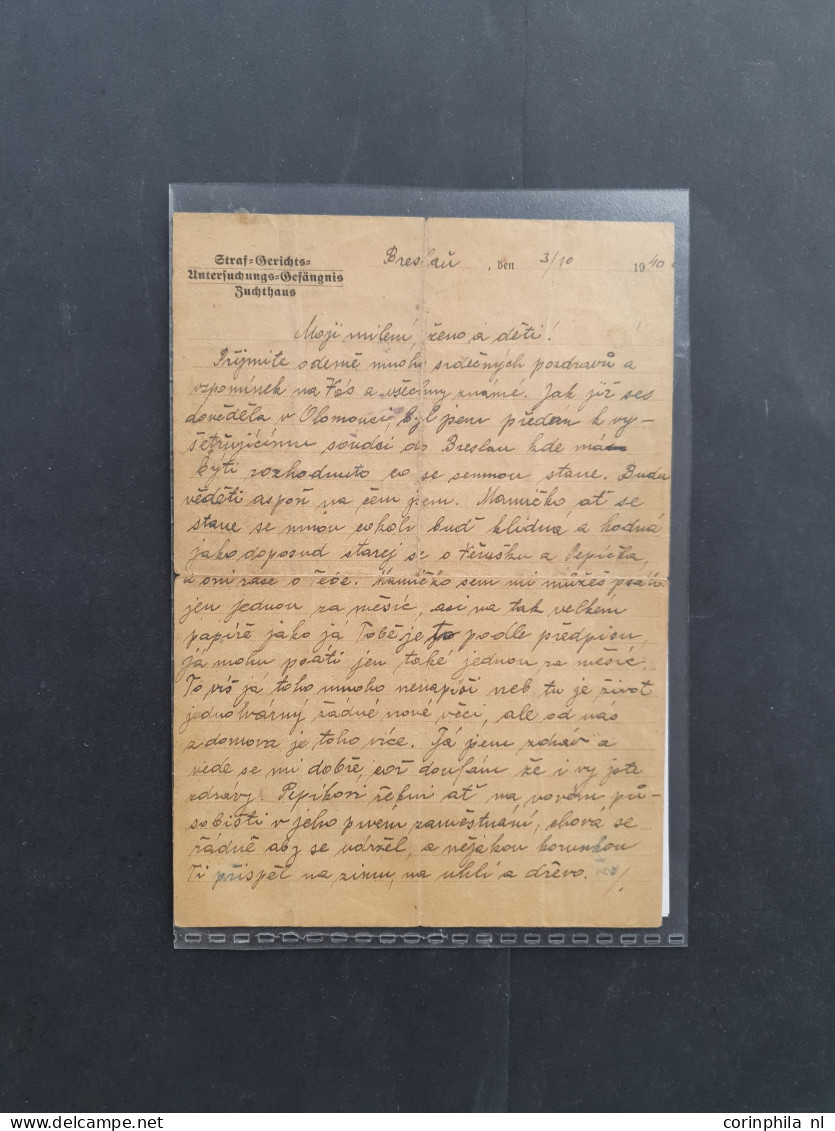 Straf=Gerichts=
Untersuchungs=Gefängnis
Zuchthaus
Breslaŭ , den 3/10 1940
Moji milení, ženo a děti!
Příjmite odemě mnoho srdečných pozdravů a
vzpomínek na Vás a všechny známé. Jak již ses
dověděla v Olomouci, byl jsem předán k vy-
šetřujícímu soudci do Breslau kde má
býti rozhodnuto co se semnou stane. Budu
věděti aspoň na čem jsem. Maničko, ať se
stane se mnou cokoliv buď klidná a hodná
jako doposud starej se o Věrušku a Pepíčka,
a oni zase o Tebe. Maničko sem mi můžeš psáti
jen jednou za měsíc, asi na tak velkém
papíře jako já Tobě je to podle předpisu,
já mohu psáti jen také jednou za měsíc.
To víš já toho mnoho nenapíši neb tu je život
jednotvárný, žádné nové věci, ale od vás
z domova je toho více. Já jsem zdráv a
vede se mi dobře, což doufám že i vy jste
zdravy. Pepíkovi řekni ať na novém pů-
sobišti v jeho prvém zaměstnaní, chova se
řádně aby se udržel, a nějakou korunkou
Ti přispěl na zimu, na uhlí a dřevo.
corinphila nl